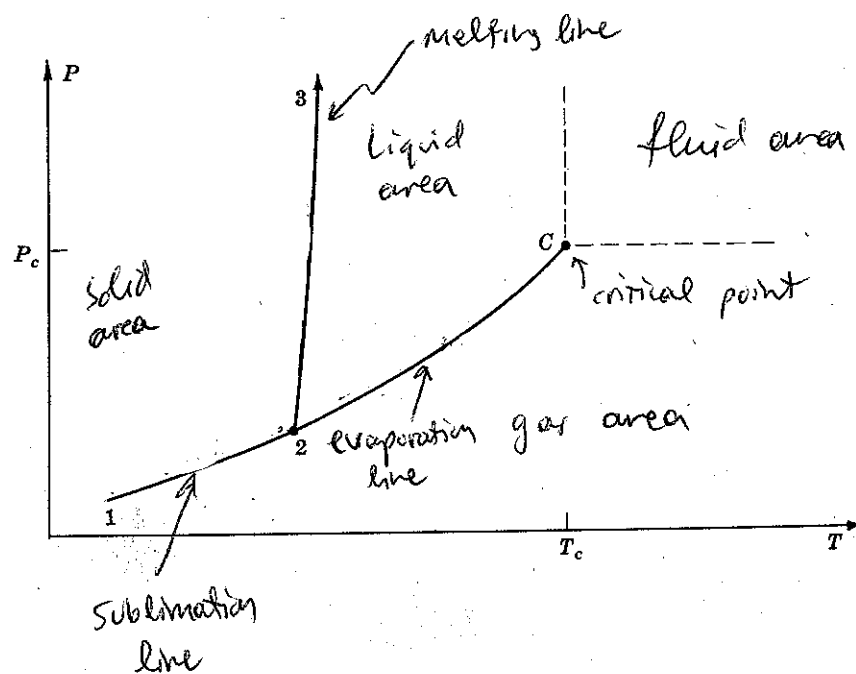 melting line
P
3
Liquid
area
fluid area
C
P_c
critical point
solid
area
2
evaporation
line
gas area
1
T_c
T
sublimation
line